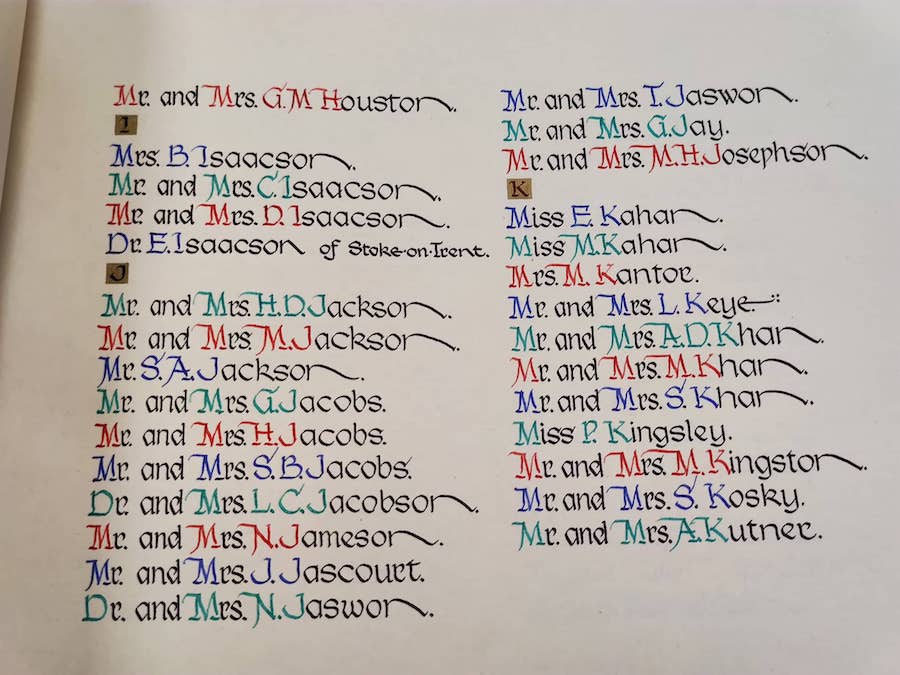 Mr. and Mrs. G.M Houston.
I
Mrs. B. Isaacson.
Mr. and Mrs. C. Isaacson.
Mr. and Mrs. D. Isaacson.
Dr. E. Isaacson of Stoke-on-Trent.
J
Mr. and Mrs. H.D. Jackson.
Mr. and Mrs. M. Jackson.
Mr. S.A. Jackson.
Mr. and Mrs. G. Jacobs.
Mr. and Mrs. H. Jacobs.
Mr. and Mrs. S.B. Jacobs.
Dr. and Mrs. L.C. Jacobson.
Mr. and Mrs. N. Jameson.
Mr. and Mrs. J. Jascourt.
Dr. and Mrs. N. Jaswon.
Mr. and Mrs. T. Jaswon.
Mr. and Mrs. G. Jay.
Mr. and Mrs. M.H. Josephson.
K
Miss E. Kahan.
Miss M. Kahan.
Mrs. M. Kantor.
Mr. and Mrs. L. Keye.
Mr. and Mrs. A.D. Khan.
Mr. and Mrs. M. Khan.
Mr. and Mrs. S. Khan.
Miss P. Kingsley.
Mr. and Mrs. M. Kingston.
Mr. and Mrs. S. Kosky.
Mr. and Mrs. A. Kutner.